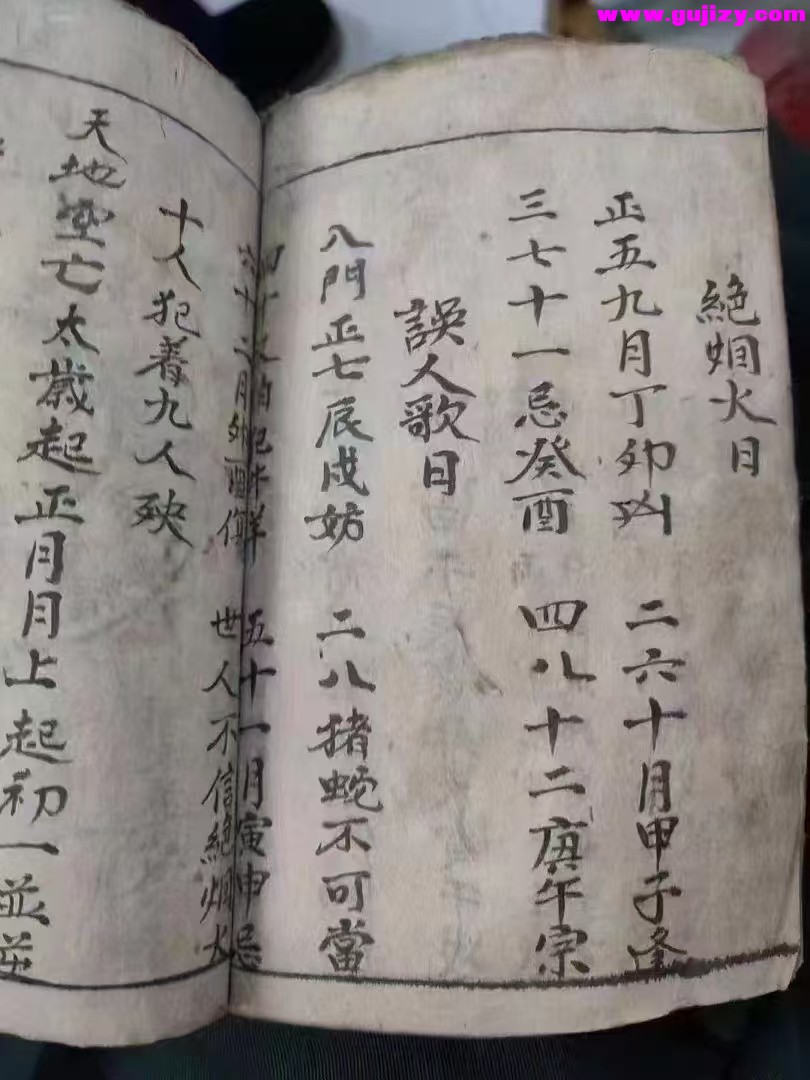 www.gujizy.com
絶烟火日
正五九月丁卯凶 二六十月甲子逢
三七十一忌癸酉 四八十二庚午宗
誤人歌日
八門正七辰戌妨 二八猪蛇不可當
五十一月寅申忌
六十二月卯酉 世人不信絶烟火
十人犯着九人殃
天地空亡太歲起正月月上起初一並逆